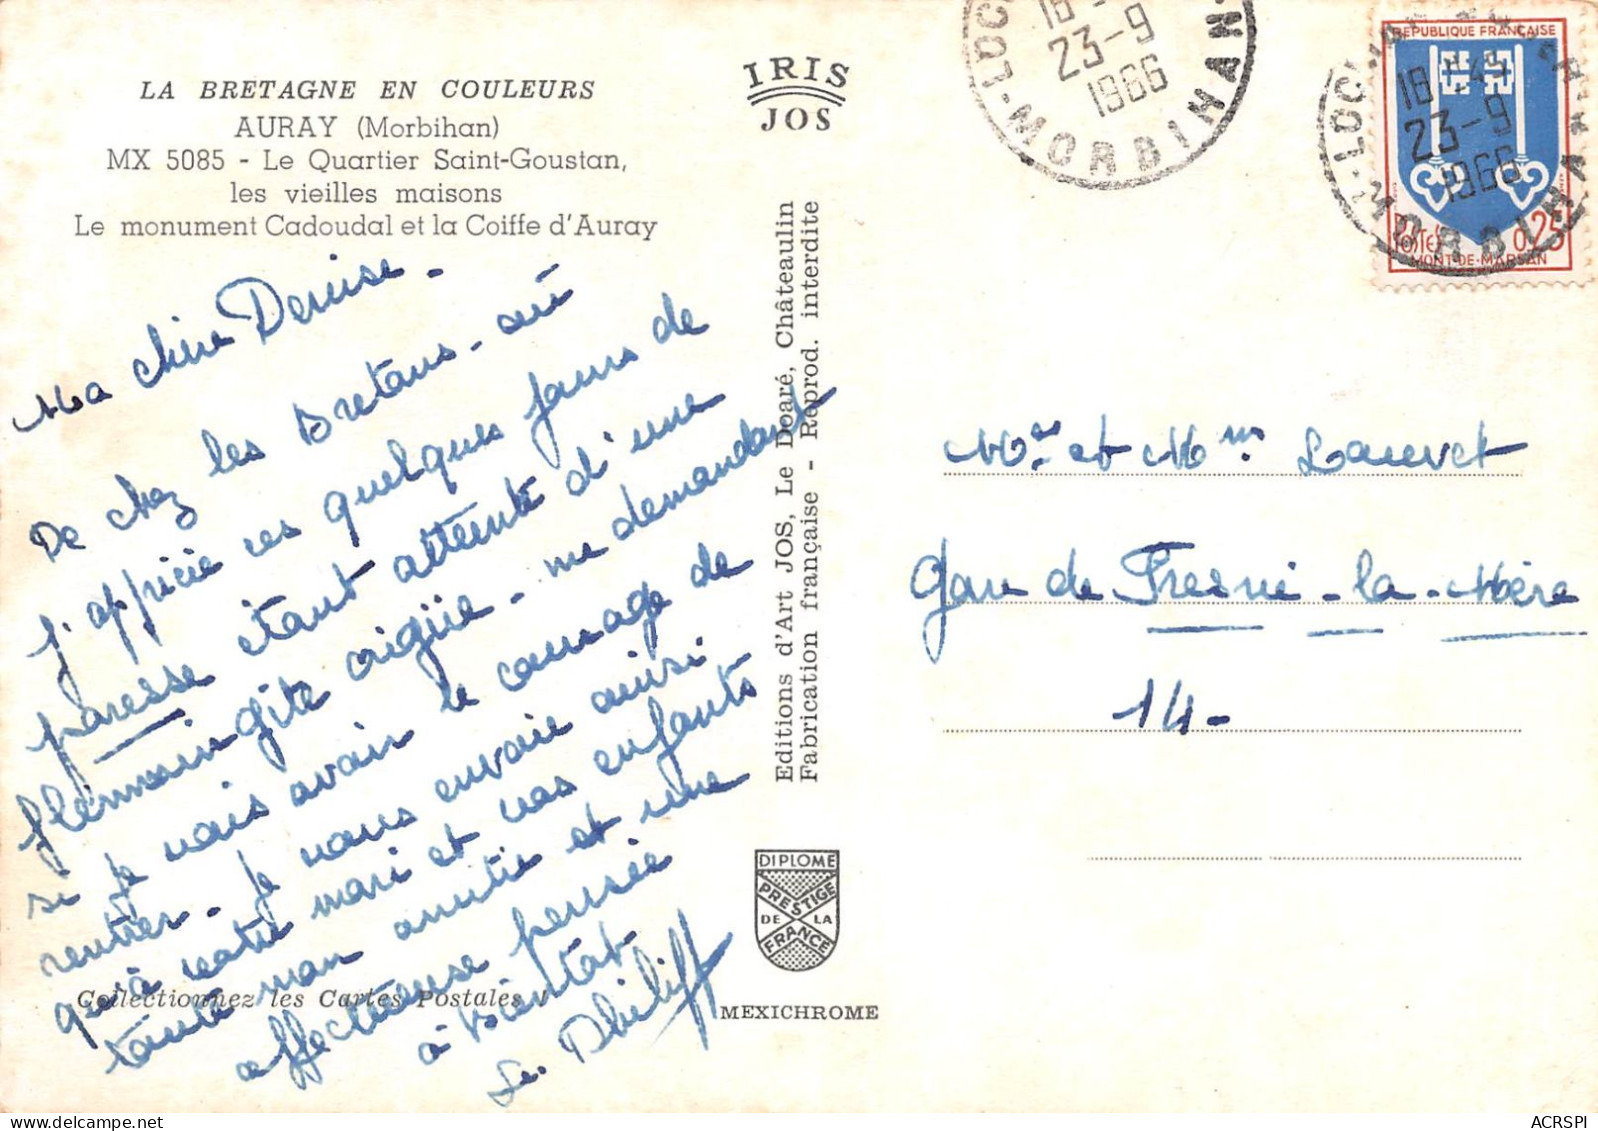 LA BRETAGNE EN COULEURS
AURAY (Morbihan)
MX 5085 - Le Quartier Saint-Goustan,
les vieilles maisons
Le monument Cadoudal et la Coiffe d'Auray
IRIS
JOS
18
23-9
1966
MORBIHAN
REPUBLIQUE FRANÇAISE
18 H45
23-9
1966
MORBIHAN
POSTES 0,25
MONT-DE-MARSAN
Ma chère Denise -
De chez les Bretons - où
j'apprécie ces quelques jours de
paresse étant atteinte d'une
flemmingite aigüe - me demandant
si je vais avoir le courage de
rentrer - Je vous envoie ainsi
qu'à votre mari et vos enfants
toute mon amitié et une
affectueuse pensée
à Bientôt
Collectionnez les Cartes Postales !
Editions d'Art JOS, Le Doaré, Châteaulin
Fabrication française - Reprod. interdite
DIPLOME
PRESTIGE
DE LA
FRANCE
MEXICHROME
Mr. et Mme Lauvet
Gare de Fresné-la-Mère
14-
ACRSPI